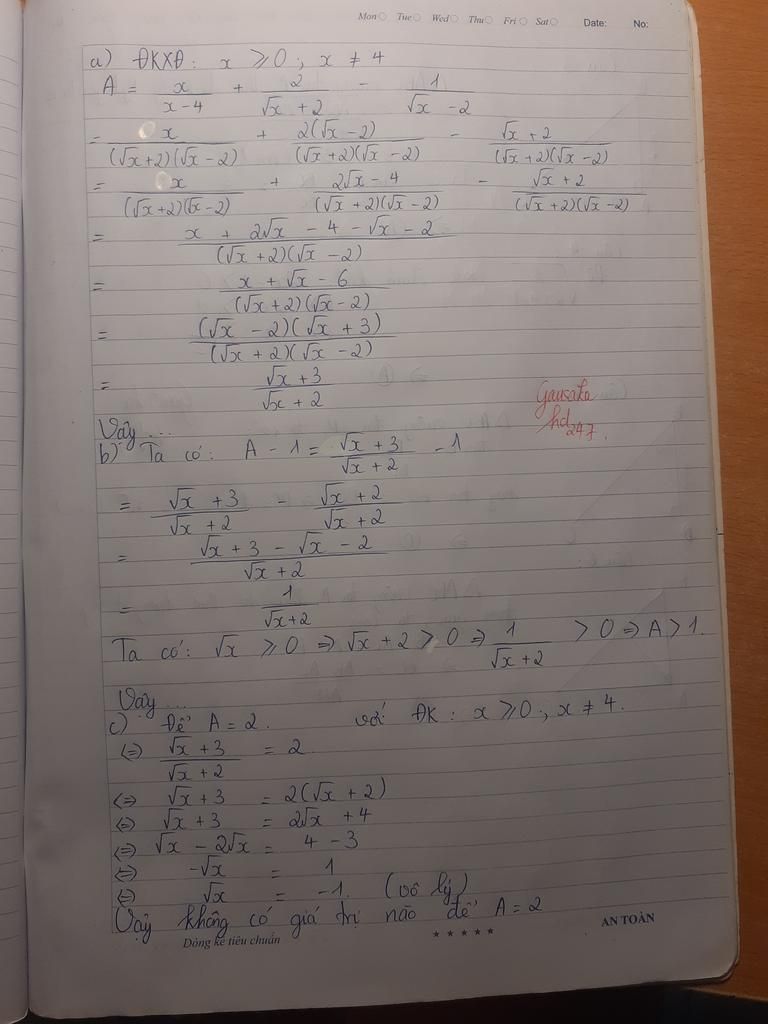 Mon Tue Wed Thu Fri Sat Date: No:
a) ĐKXĐ: x ≥ 0; x ≠ 4
A = x/(x - 4) + 2/(√x + 2) - 1/(√x - 2)
= x/((√x+2)(√x - 2)) + 2(√x - 2)/((√x+2)(√x - 2)) - (√x + 2)/((√x+2)(√x - 2))
= x/((√x+2)(√x - 2)) + (2√x - 4)/((√x+2)(√x - 2)) - (√x + 2)/((√x+2)(√x - 2))
= (x + 2√x - 4 - √x - 2)/((√x+2)(√x - 2))
= (x + √x - 6)/((√x+2)(√x - 2))
= (√x - 2)(√x + 3)/((√x+2)(√x - 2))
= (√x + 3)/(√x + 2)
Gausaka
hd247.
Vậy ...
b) Ta có: A - 1 = (√x + 3)/(√x + 2) - 1
= (√x + 3)/(√x + 2) - (√x + 2)/(√x + 2)
= (√x + 3 - √x - 2)/(√x + 2)
= 1/(√x+2)
Ta có: √x ≥ 0 ⇒ √x + 2 > 0 ⇒ 1/(√x + 2) > 0 ⇒ A > 1.
Vậy ...
c) Để A = 2. với ĐK: x ≥ 0; x ≠ 4.
⇔ (√x + 3)/(√x + 2) = 2
⇔ √x + 3 = 2(√x + 2)
⇔ √x + 3 = 2√x + 4
⇔ √x - 2√x = 4 - 3
⇔ -√x = 1
⇔ √x = -1. (vô lý)
Vậy không có giá trị nào để A = 2
Dòng kẻ tiêu chuẩn ★ ★ ★ ★ ★ AN TOÀN